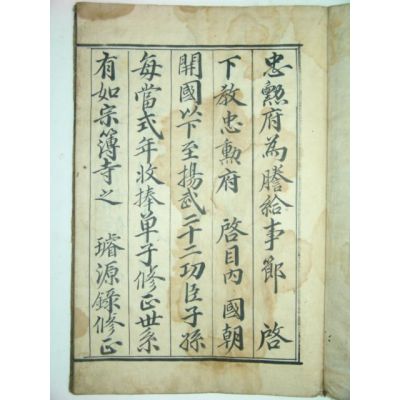 忠勳府為謄給事節 啓
下教忠勳府 啓目內 國朝
開國以下至揚武二十二功臣子孫
每當式年收捧单子修正世系
有如宗簿寺之 璿源錄修正